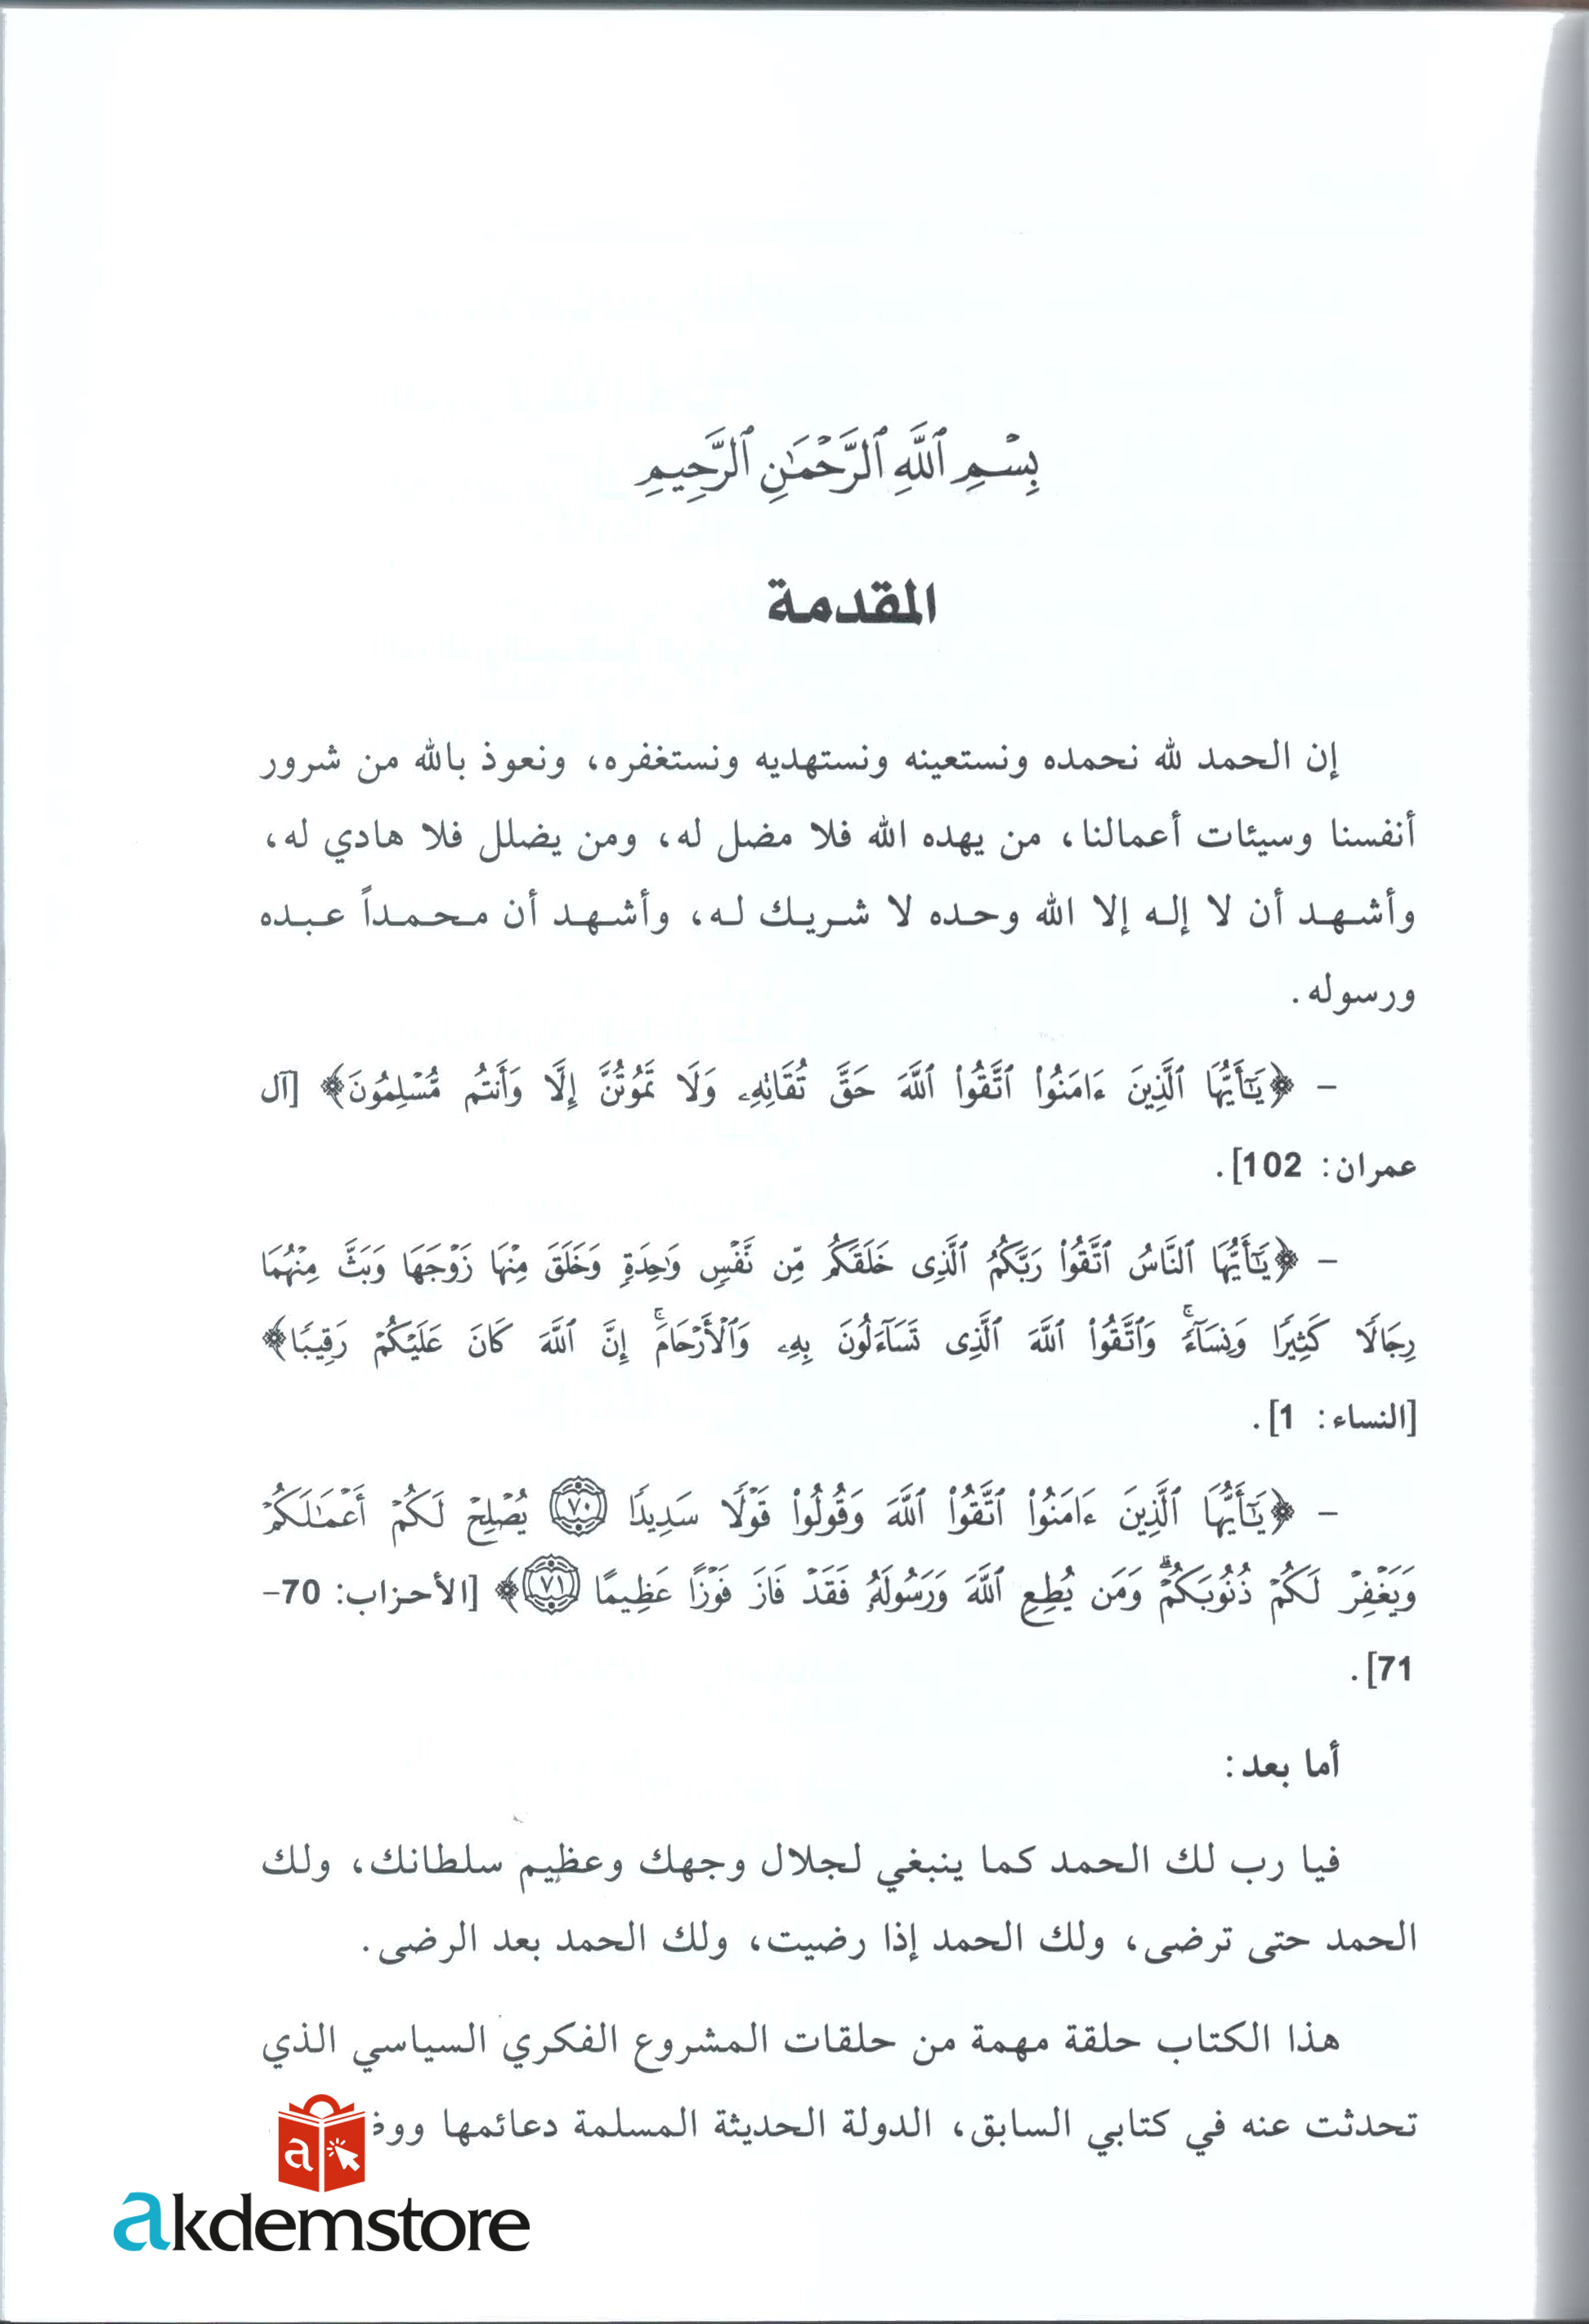 بِسْمِ ٱللَّهِ ٱلرَّحْمَٰنِ ٱلرَّحِيمِ
المقدمة
إن الحمد لله نحمده ونستعينه ونستهديه ونستغفره، ونعوذ بالله من شرور
أنفسنا وسيئات أعمالنا، من يهده الله فلا مضل له، ومن يضلل فلا هادي له،
وأشهد أن لا إله إلا الله وحده لا شريك له، وأشهد أن محمداً عبده
ورسوله.
– ﴿يَٰٓأَيُّهَا ٱلَّذِينَ ءَامَنُوا۟ ٱتَّقُوا۟ ٱللَّهَ حَقَّ تُقَاتِهِۦ وَلَا تَمُوتُنَّ إِلَّا وَأَنتُم مُّسْلِمُونَ﴾ [آل
عمران: 102].
– ﴿يَٰٓأَيُّهَا ٱلنَّاسُ ٱتَّقُوا۟ رَبَّكُمُ ٱلَّذِى خَلَقَكُم مِّن نَّفْسٍ وَٰحِدَةٍ وَخَلَقَ مِنْهَا زَوْجَهَا وَبَثَّ مِنْهُمَا
رِجَالًا كَثِيرًا وَنِسَآءً ۚ وَٱتَّقُوا۟ ٱللَّهَ ٱلَّذِى تَسَآءَلُونَ بِهِۦ وَٱلْأَرْحَامَ ۚ إِنَّ ٱللَّهَ كَانَ عَلَيْكُمْ رَقِيبًا﴾
[النساء: 1].
– ﴿يَٰٓأَيُّهَا ٱلَّذِينَ ءَامَنُوا۟ ٱتَّقُوا۟ ٱللَّهَ وَقُولُوا۟ قَوْلًا سَدِيدًا ٧٠ يُصْلِحْ لَكُمْ أَعْمَٰلَكُمْ
وَيَغْفِرْ لَكُمْ ذُنُوبَكُمْ ۗ وَمَن يُطِعِ ٱللَّهَ وَرَسُولَهُۥ فَقَدْ فَازَ فَوْزًا عَظِيمًا ٧١﴾ [الأحزاب: 70–
71].
أما بعد:
فيا رب لك الحمد كما ينبغي لجلال وجهك وعظيم سلطانك، ولك
الحمد حتى ترضى، ولك الحمد إذا رضيت، ولك الحمد بعد الرضى.
هذا الكتاب حلقة مهمة من حلقات المشروع الفكري السياسي الذي
تحدثت عنه في كتابي السابق، الدولة الحديثة المسلمة دعائمها
akdemstore